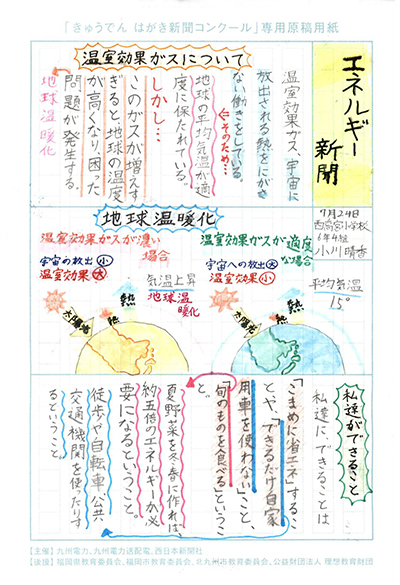 「きゅうでん はがき新聞コンクール」専用原稿用紙
エネルギー
新聞
7月24日
西高宮小学校
6年4組
小川晴香
平均気温
15°
温室効果ガスについて
温室効果ガス、宇宙に
放出される熱をにがさ
ない働きをしている。
←そのため…
地球の平均気温が適
度に保たれている。
しかし…
このガスが増えす
ぎると、地球の温度
が高くなり、困った
問題が発生する。
地球温暖化
地球温暖化
温室効果ガスが適度
な場合
宇宙への放出 大
温室効果 小
熱
熱
太陽光
温室効果ガスが濃い
場合
宇宙の放出 小
温室効果 大
気温上昇
地球温
暖化
熱
熱
太陽光
私達ができること
私達に、できることは
「こまめに省エネ」するこ
とや、「できるだけ自家
用車を使わない」こと、
「旬のものを食べる」というこ
と。
夏野菜を冬春に作れば、
約五倍のエネルギーが必
要になるということ。
徒歩や自転車、公共
交通機関を使ったりす
るということ。
【主催】九州電力、九州電力送配電、西日本新聞社
【後援】福岡県教育委員会、福岡市教育委員会、北九州市教育委員会、公益財団法人 理想教育財団